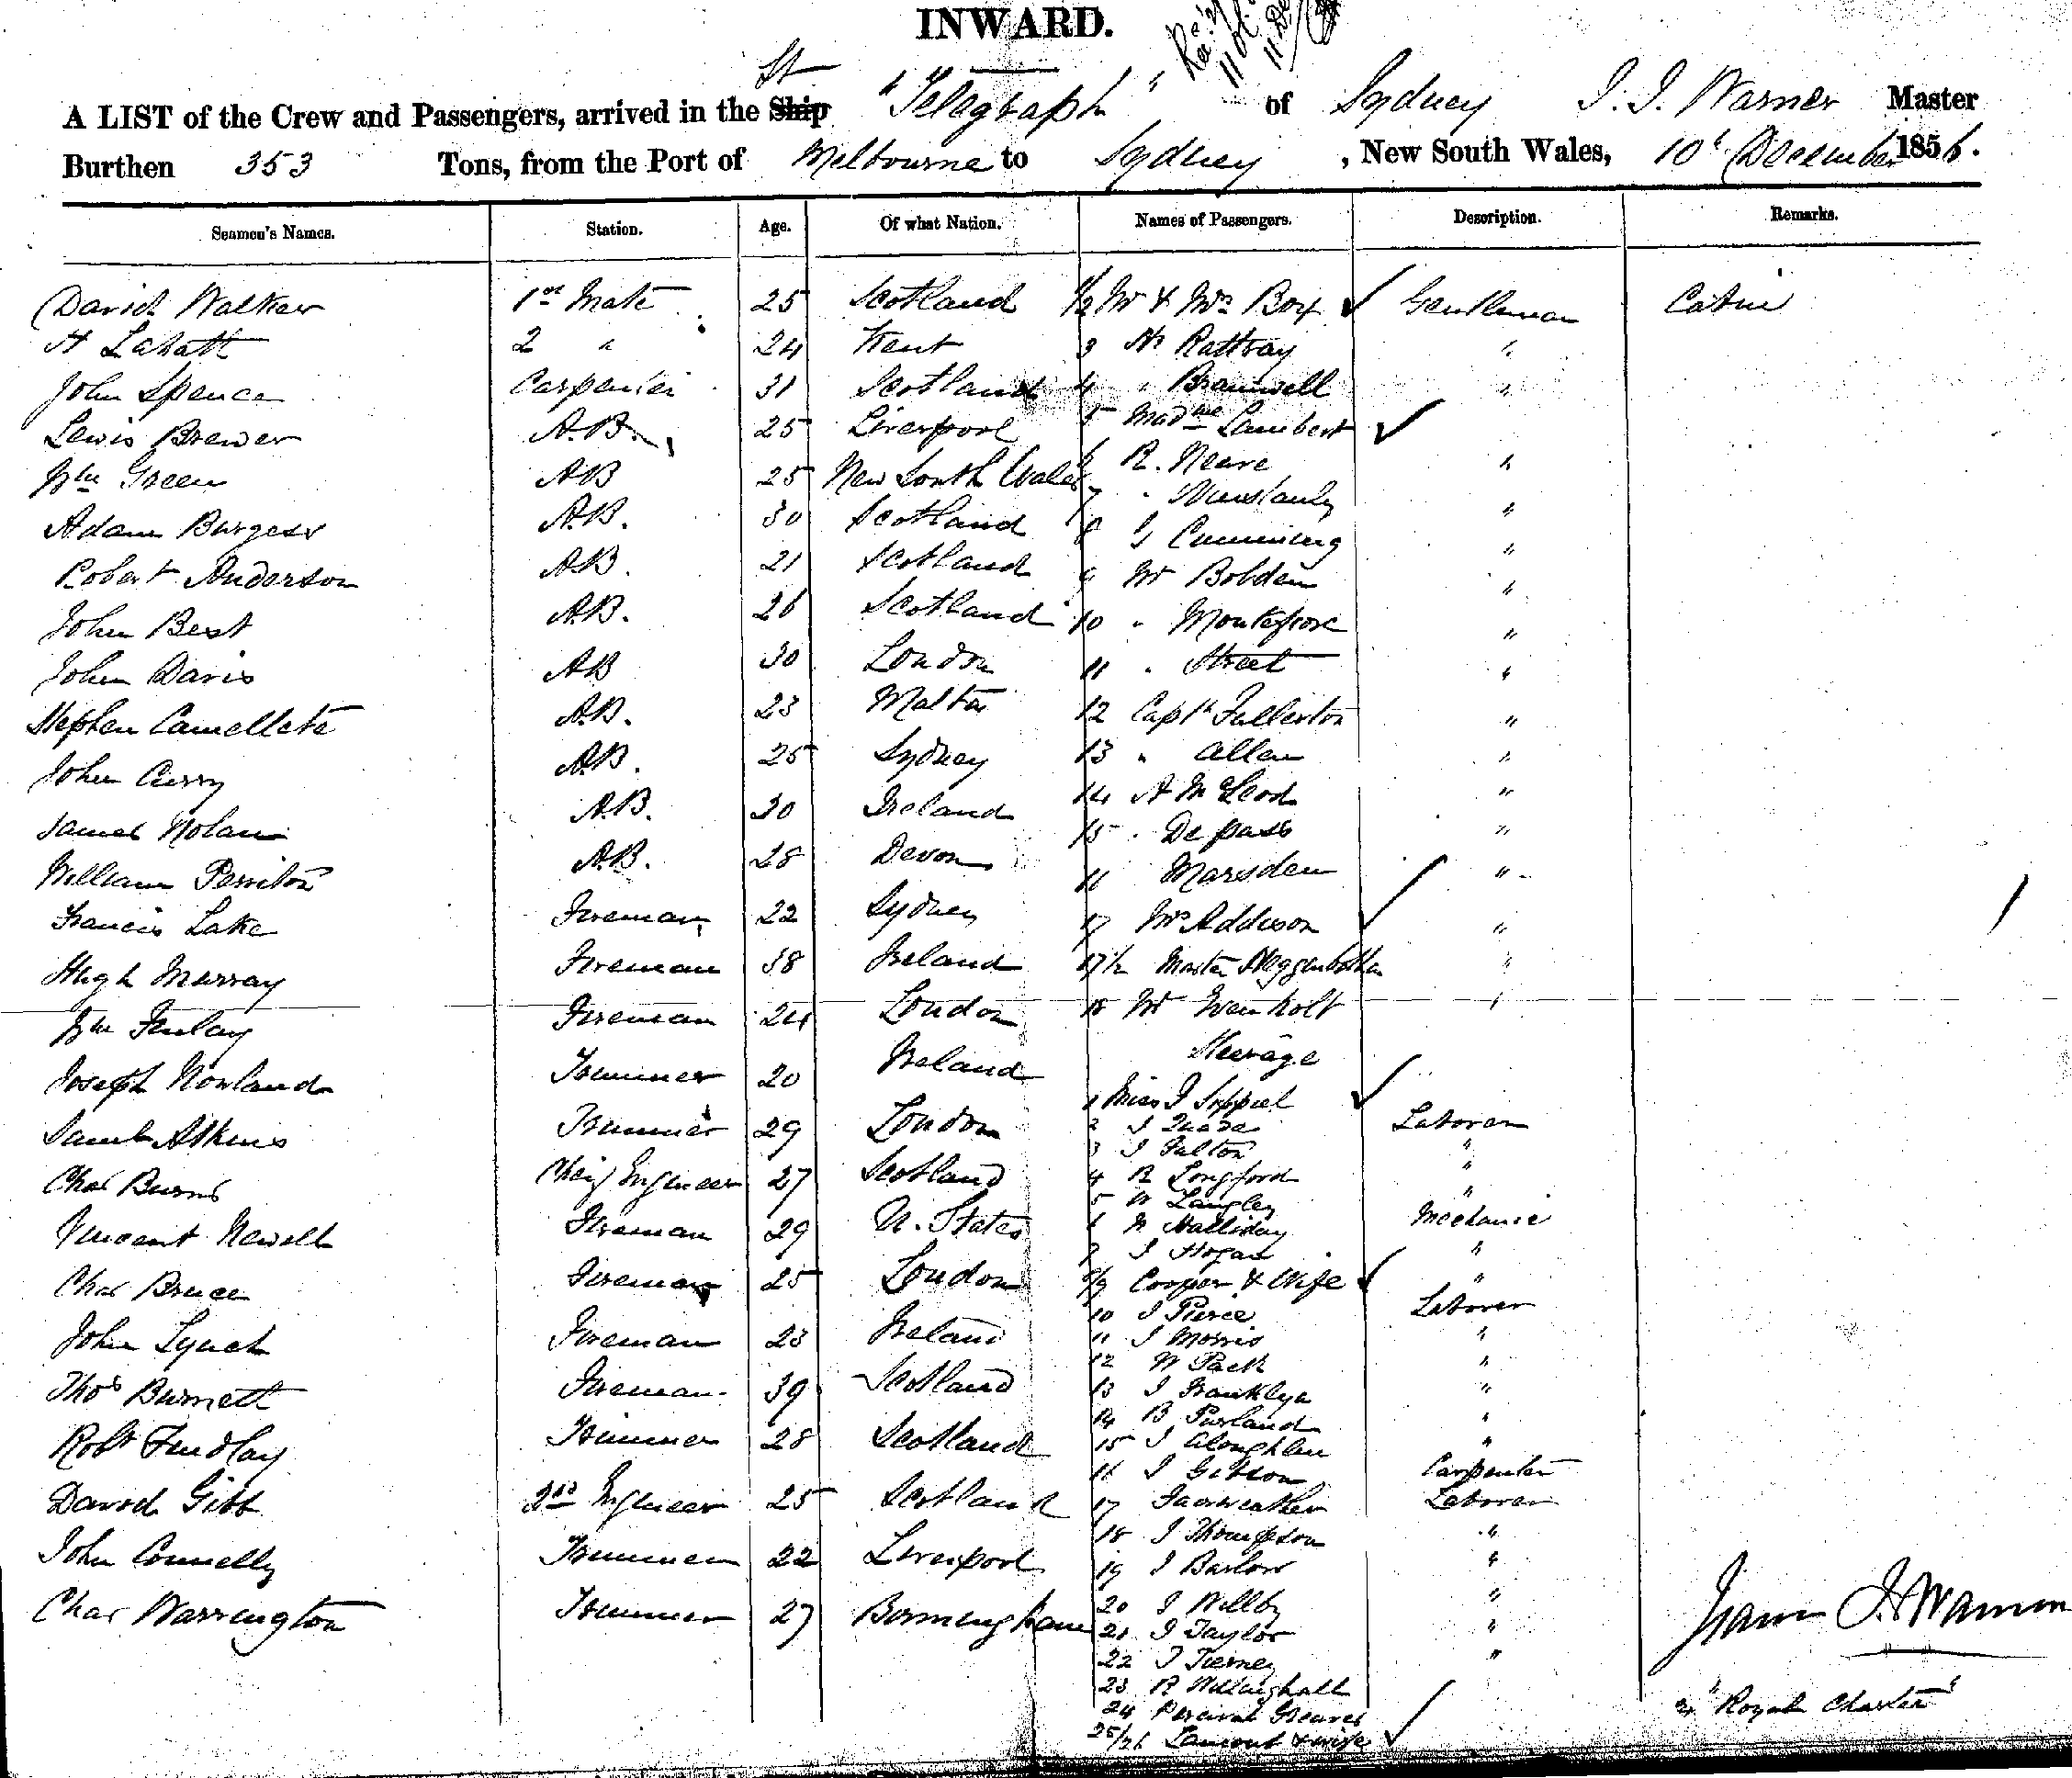 INWARD.
St
A LIST of the Crew and Passengers, arrived in the Ship "Telegraph" of Sydney J. J. Warner Master
Burthen 353 Tons, from the Port of Melbourne to Sydney, New South Wales, 10t December 1856.
Seamen's Names. Station. Age. Of what Nation. Names of Passengers. Description. Remarks.
David Walker 1st Mate 25 Scotland 1/2 Mr & Mrs Box Gentleman Cabin
2 " 24 Kent 3 Mr Rattray "
John Spence Carpenter 31 Scotland 4 " Bramwell "
Lewis Brewer A.B. 25 Liverpool 5 Madme Lambert
Wm Green AB 25 New South Wales 6 R. Neave "
Adam Burgess A.B. 30 Scotland 7 " "
Robert Anderson AB. 21 Scotland 8 J Cumming "
John Best A.B. 26 Scotland 9 Mr Bobden "
John Davis AB 30 London 10 " Montefiore "
Stephen Camellete A.B. 23 Malta 11 " Street "
John Curry A.B. 25 Sydney 12 Captn Fullerton "
James Nolan A.B. 30 Ireland 13 " Allen "
William Perriton A.B. 28 Devon 14 A McLeod "
Francis Lake Fireman 22 Sydney 15 " De pass "
Hugh Murray Fireman 38 Ireland 16 Marsden "
Wm Finlay Fireman 24 London 17 Mrs Addison "
Joseph Nowland Trimmer 20 Ireland 17 1/2 Master Heggenbotham "
Saml Atkins Trimmer 29 London 18 Mr "
Chas Burns Chief Engineer 27 Scotland Steerage
Vincent Newell Fireman 29 U. States 1 Miss J
Chas Bruce Fireman 25 London 2 J Laborer
John Lynch Fireman 23 Ireland 3 J Fulton "
Thos Burnett Fireman 39 Scotland 4 R Longford "
Robt Findlay Trimmer 28 Scotland 5 W Langley "
David Gibb 2nd Engineer 25 Scotland 6 W Halliday Mechanic
John Connelly Trimmer 22 Liverpool 7 J Hogan "
Chas Warrington Trimmer 27 Birmingham 8/9 Cooper & Wife "
10 J Pierce Laborer
11 J Morris "
12 W Pack "
13 J Franklyn "
14 B Purland "
15 J Aloughlen "
16 J Gibson Carpenter
17 Fairweather Laborer
18 J Thompson "
19 J Barlow "
20 J Willby "
21 J Taylor "
22 J Tierney "
23 R Willinghall
24 Percival Greaves
25/26 Lamont & wife
"Royal Charter"